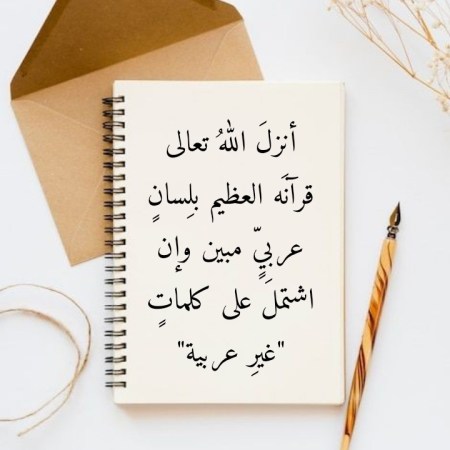 أنزلَ اللهُ تعالى
قرآنَه العظيم بلِسانٍ
عربيٍّ مبين وإن
اشتملَ على كلماتٍ
"غيرِ عربية"